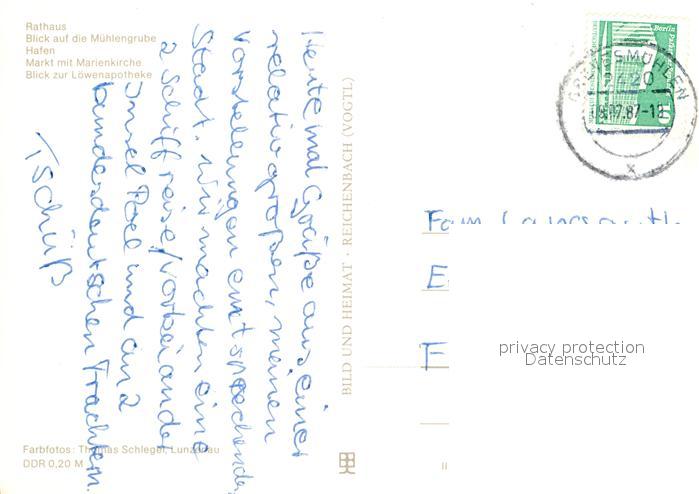 Rathaus
Blick auf die Mühlengrube
Hafen
Markt mit Marienkirche
Blick zur Löwenapotheke
Heute mal Grüße aus einer
relativ großen, meinen
Vorstellungen entsprechenden
Stadt. Wir machten eine
2 Schiffreise/vorbei an der
Insel Poel und an 2
bundesdeutschen Frachtern.
Tschüß
Farbfotos: Thomas Schlegel, Lunzenau
DDR 0,20 M
BILD UND HEIMAT · REICHENBACH (VOGTL)
Berlin
10
GREVESMÜHLEN
2420
87-18
Fam
E
F
privacy protection
Datenschutz
II